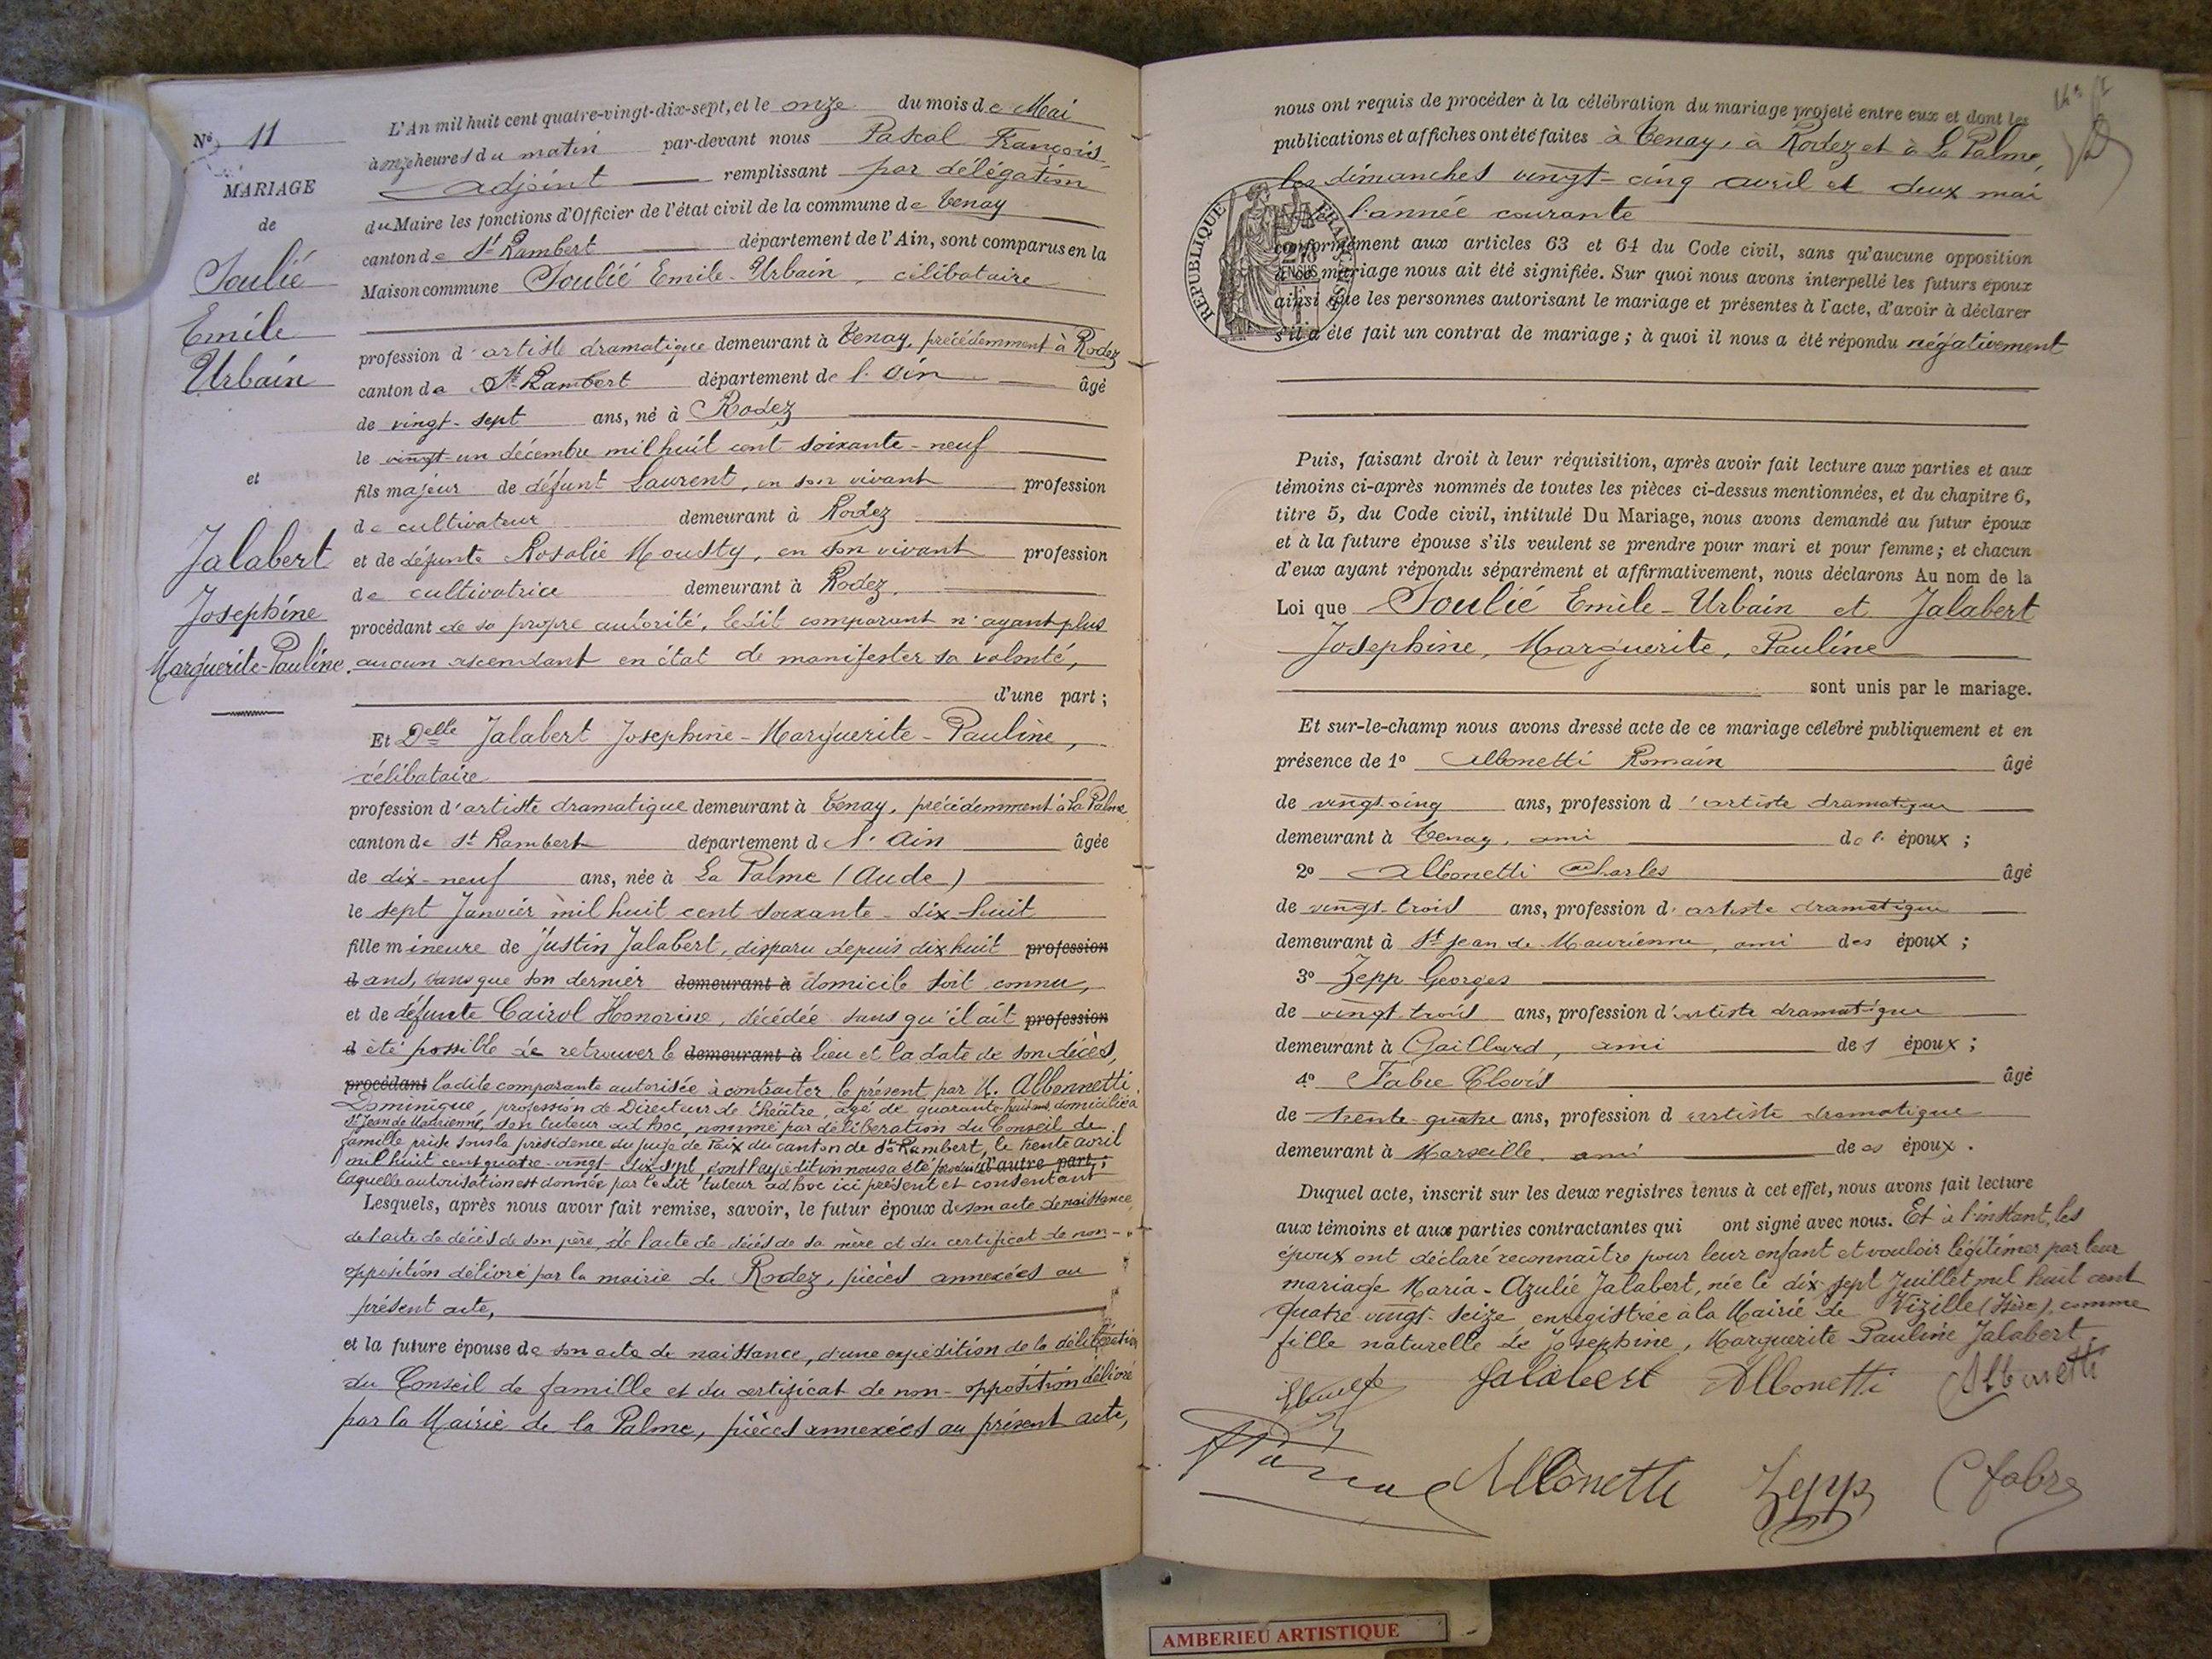 Nº 11
MARIAGE
de
Soulié
Emile
Urbain
et
Jalabert
Josephine
Marguerite-Pauline.
L'An mil huit cent quatre-vingt-dix-sept, et le onze du mois de Mai
à onze heures du matin par-devant nous Pascal François,
adjoint remplissant par délégation
du Maire les fonctions d'Officier de l'état civil de la commune de Tenay
canton de St Rambert département de l'Ain, sont comparus en la
Maison commune Soulié Emile-Urbain, célibataire
profession d'artiste dramatique demeurant à Tenay, précédemment à Rodez
canton de St Rambert département de l'Ain âgé
de vingt-sept ans, né à Rodez
le vingt-un décembre mil huit cent soixante-neuf
fils majeur de défunt Laurent, en son vivant profession
de cultivateur demeurant à Rodez
et de défunte Rosalie Mousty, en son vivant profession
de cultivatrice demeurant à Rodez,
procédant de sa propre autorité, ledit comparant n'ayant plus
aucun ascendant en état de manifester sa volonté,
d'une part;
Et Delle Jalabert Josephine-Marguerite-Pauline,
célibataire
profession d'artiste dramatique demeurant à Tenay, précédemment à La Palme
canton de St Rambert département d l'Ain âgée
de dix-neuf ans, née à La Palme (Aude)
le sept Janvier mil huit cent soixante-dix-huit
fille mineure de Justin Jalabert, disparu depuis dix huit profession
d ans, sans que son dernier demeurant à domicile soit connu,
et de défunte Cairol Honorine, décédée sans qu'il ait profession
d été possible de retrouver le demeurant à lieu et la date de son décès,
procédant ladite comparante autorisée à contracter le présent par M. Albonnetti
Dominique, profession de Directeur de théâtre, âgé de quarante-huit ans, domicilié à
St Jean de Maurienne, son tuteur ad hoc, nommé par délibération du Conseil de
famille prise sous la présidence du juge de Paix du canton de St Rambert, le trente avril
mil huit cent quatre-vingt-dix-sept, dont l'expédition nous a été produite d'autre part;
laquelle autorisation est donnée par le dit tuteur ad hoc ici présent et consentant
Lesquels, après nous avoir fait remise, savoir, le futur époux de son acte de naissance,
de l'acte de décès de son père, de l'acte de décès de sa mère et du certificat de non-
opposition délivré par la mairie de Rodez, pièces annexées au
présent acte,
et la future épouse de son acte de naissance, d'une expédition de la délibération
du Conseil de famille et du certificat de non-opposition délivré
par la Mairie de la Palme, pièces annexées au présent acte,
nous ont requis de procéder à la célébration du mariage projeté entre eux et dont les
publications et affiches ont été faites à Tenay, à Rodez et à La Palme,
les dimanches vingt-cinq avril et deux mai
de l'année courante
REPUBLIQUE FRANÇAISE
conformément aux articles 63 et 64 du Code civil, sans qu'aucune opposition
à ce mariage nous ait été signifiée. Sur quoi nous avons interpellé les futurs époux
ainsi que les personnes autorisant le mariage et présentes à l'acte, d'avoir à déclarer
s'il a été fait un contrat de mariage; à quoi il nous a été répondu négativement
Puis, faisant droit à leur réquisition, après avoir fait lecture aux parties et aux
témoins ci-après nommés de toutes les pièces ci-dessus mentionnées, et du chapitre 6,
titre 5, du Code civil, intitulé Du Mariage, nous avons demandé au futur époux
et à la future épouse s'ils veulent se prendre pour mari et pour femme; et chacun
d'eux ayant répondu séparément et affirmativement, nous déclarons Au nom de la
Loi que Soulié Emile-Urbain et Jalabert
Josephine, Marguerite, Pauline
sont unis par le mariage.
Et sur-le-champ nous avons dressé acte de ce mariage célébré publiquement et en
présence de 1º Albonetti Romain âgé
de vingt cinq ans, profession d'artiste dramatique
demeurant à Tenay, ami de l' époux;
2º Albonetti Charles âgé
de vingt-trois ans, profession d'artiste dramatique
demeurant à St Jean de Maurienne, ami des époux;
3º Zepp Georges
de vingt-trois ans, profession d'artiste dramatique
demeurant à Gaillard, ami des époux;
4º Fabre Clovis âgé
de trente-quatre ans, profession d artiste dramatique
demeurant à Marseille, ami des époux.
Duquel acte, inscrit sur les deux registres tenus à cet effet, nous avons fait lecture
aux témoins et aux parties contractantes qui ont signé avec nous. Et à l'instant, les
époux ont déclaré reconnaître pour leur enfant et vouloir légitimer par leur
mariage Maria-Azulie Jalabert, née le dix-sept Juillet mil huit cent
quatre-vingt-seize, enregistrée à la Mairie de Vizille (Isère), comme
fille naturelle de Josephine, Marguerite Pauline Jalabert.
Jalabert Albonetti Albonetti
Albonetti Zepp C Fabre
AMBERIEU ARTISTIQUE